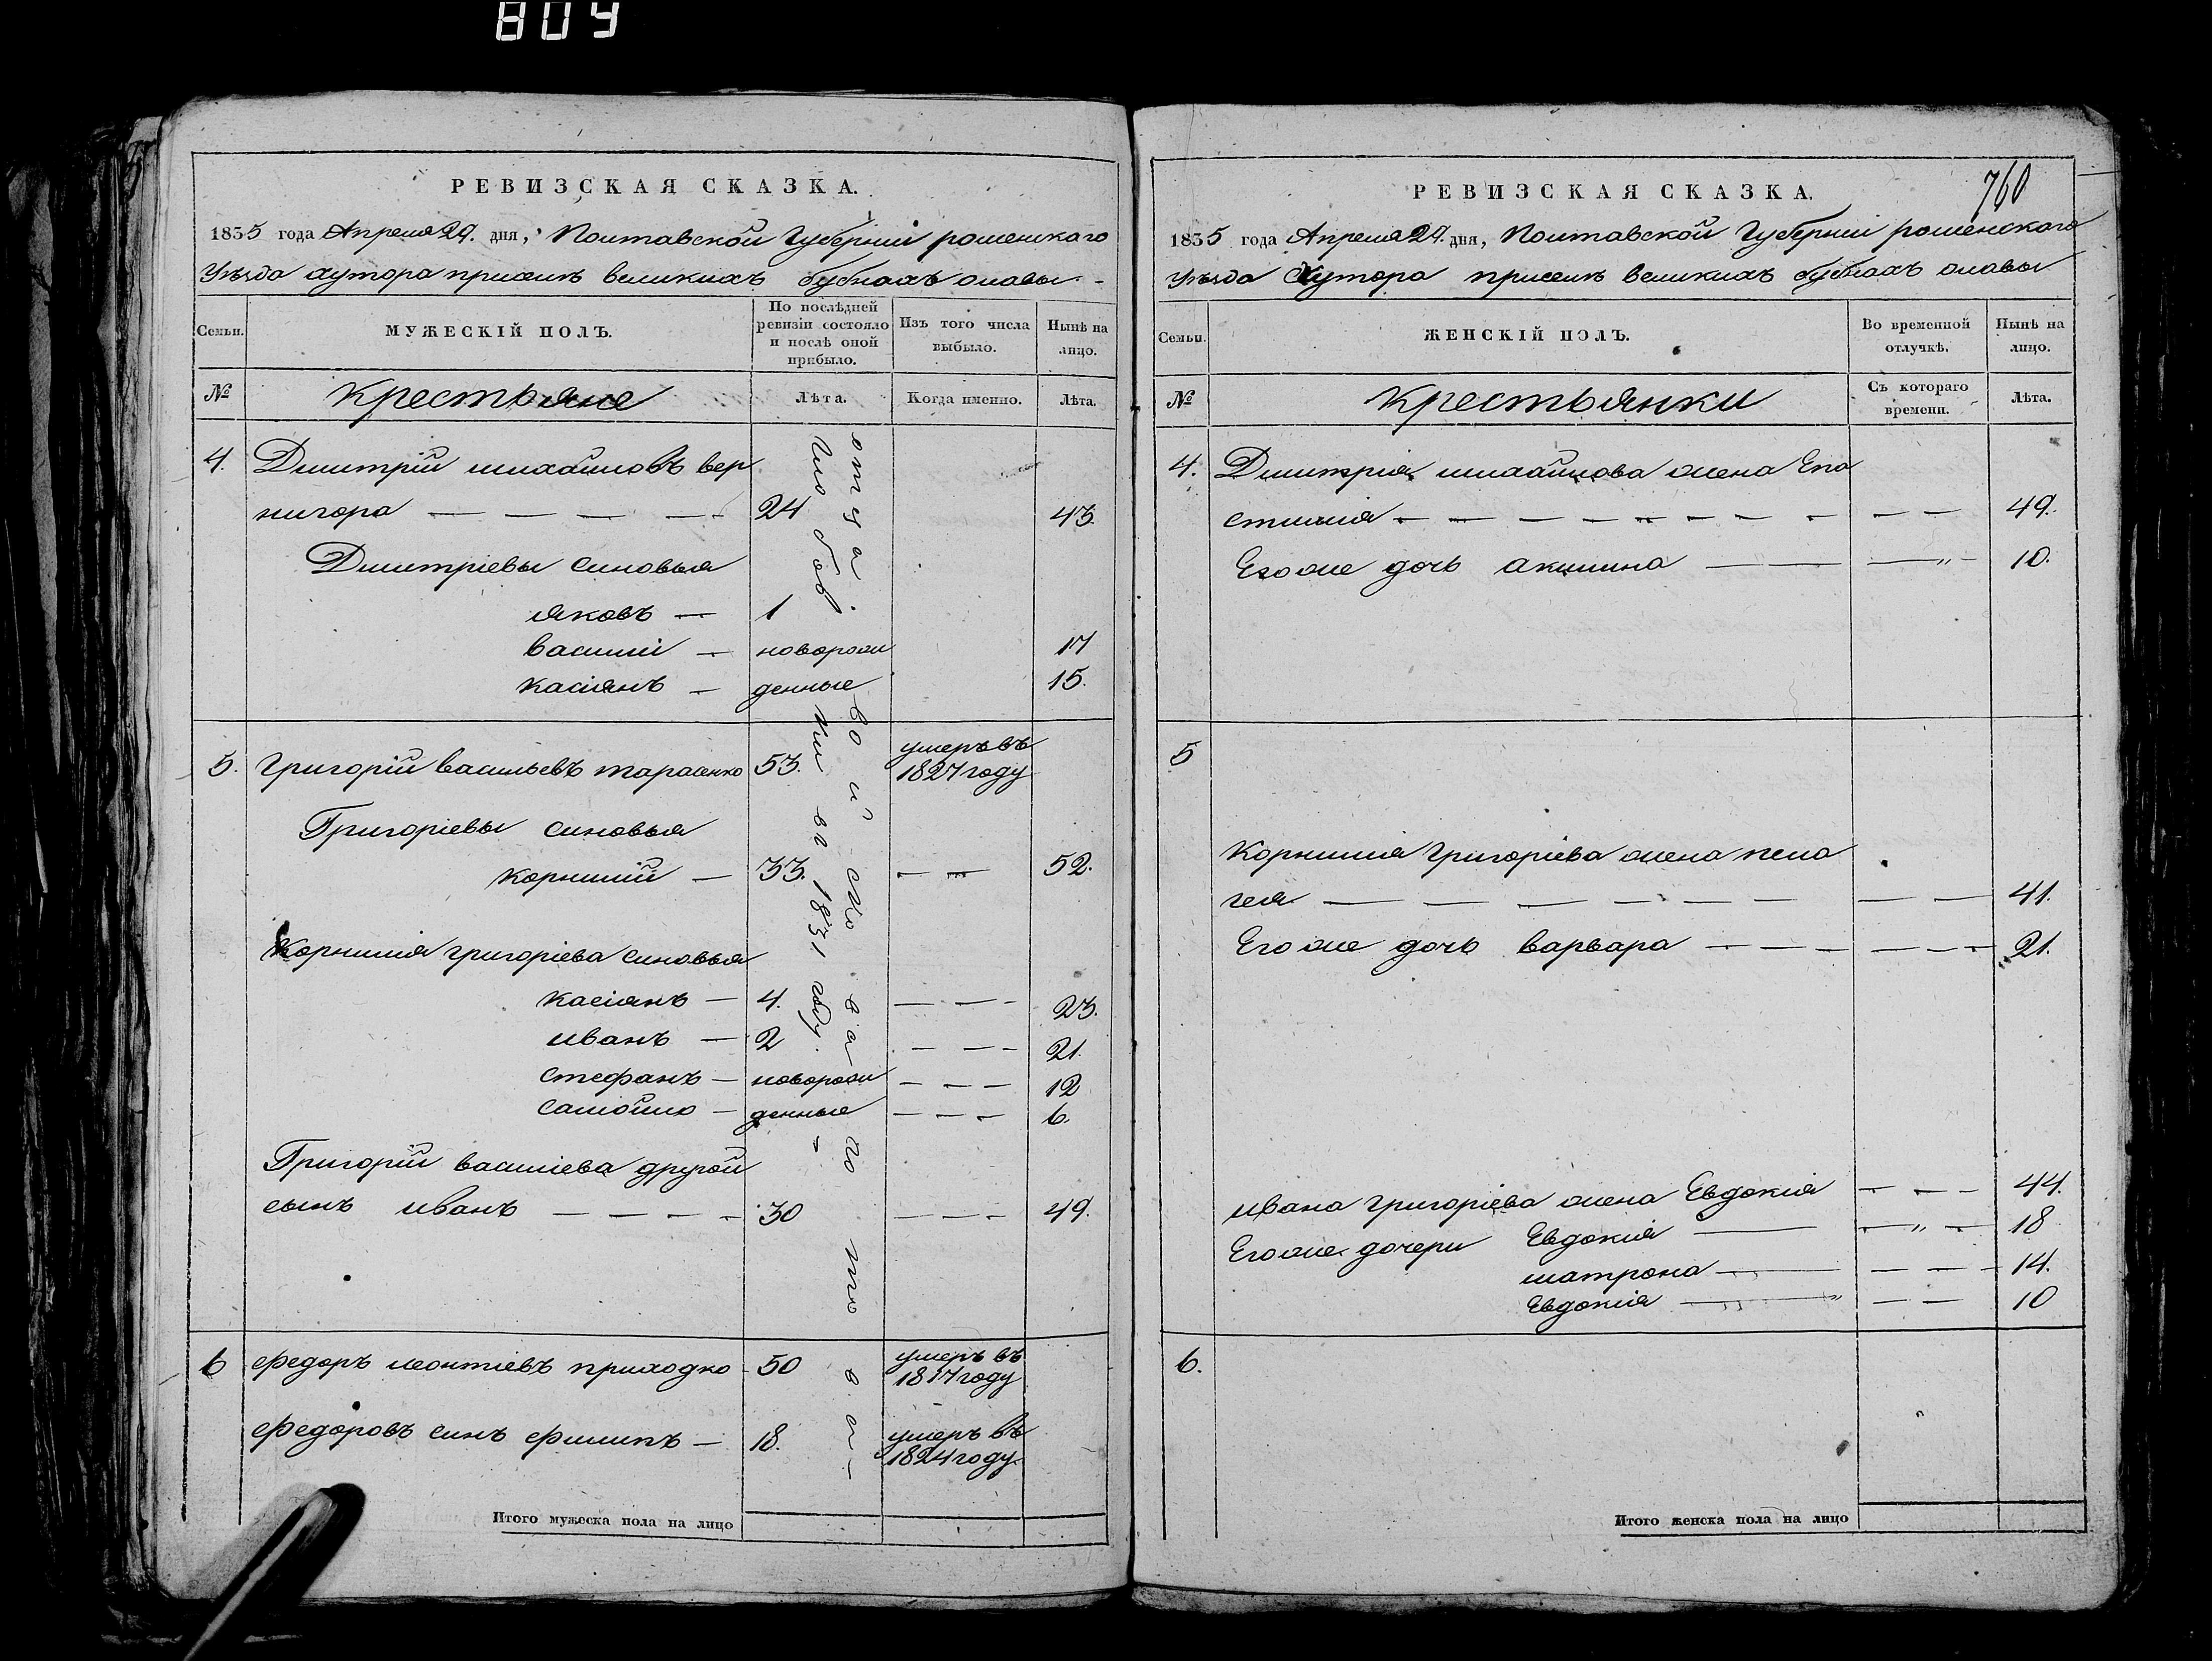 809
РЕВИЗСКАЯ СКАЗКА.
1835 года Апреля 29. дня, Полтавской Губерніи роменского
Уѣзда хутора при селѣ великихъ бубнахъ
Семьи.
МУЖЕСКІЙ ПОЛЪ.
По послѣдней ревизіи состояло и послѣ оной прибыло.
Изъ того числа выбыло.
Нынѣ на лицо.
№
Крестьяне
Лѣта.
Когда именно.
Лѣта.
4. Димитрій михайловъ вер
нигора — — — — 24 43.
Димитріевы синовья
яковъ — 1
василій — новорож 17
касіянъ — денные 15.
5. Григорій васильевъ тарасенко 53. умеръ въ 1827 году
Григоріевы синовья
корнилій — 33. — — 52.
Корнилія григоріева синовья
касіянъ — 4. — — — 23.
иванъ — 2 — — — 21.
стефанъ — новорож — — — 12
самойло — денные — — — 6.
Григорій василіева другой
сынъ иванъ — — — — 30 — — — 49.
6 федоръ леонтіевъ приходко 50 умеръ въ 1817 году
федоровъ синъ филипъ — 18. умеръ въ 1824 году.
1831 году.
Итого мужеска пола на лицо
760
РЕВИЗСКАЯ СКАЗКА.
1835 года Апреля 29. дня, Полтавской Губерніи роменского
Уѣзда Хутора при селѣ великихъ бубнахъ
Семьи.
ЖЕНСКІЙ ПОЛЪ.
Во временной отлучкѣ.
Нынѣ на лицо.
№
Крестьянки
Съ котораго времени.
Лѣта.
4. Димитрія михайлова жена Епи
стимія — — — — — — — — — 49.
Егоже дочь акилина — — — 10.
5
Корнилія григоріева жена пела
гея — — — — — — — — 41.
Егоже дочь варвара — — — — — — 21.
ивана григоріева жена Евдокія — — — 44.
Егоже дочери Евдокія — — — 18
матрона — — — — 14.
Евдокія — — — 10
6.
Итого женска пола на лицо